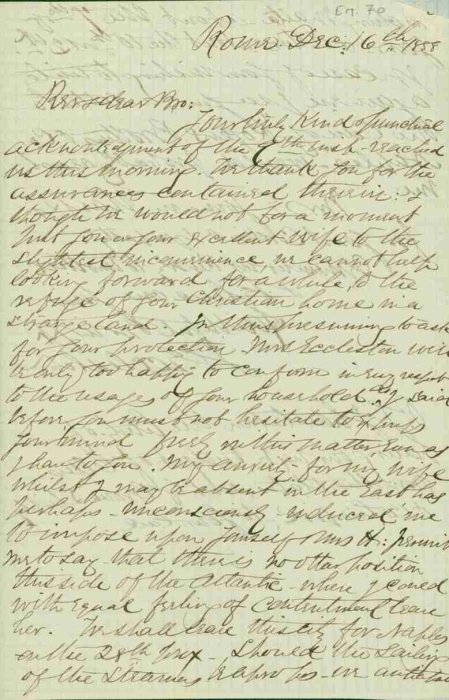 Em. 70
Rome Dec. 16th 1858
Rev & dear Bro:
Your truly kind & punctual
acknowledgment of the 7th inst. reached
us this morning. We thank you for the
assurances contained therein: &
though we would not for a moment
put you or your excellent wife to the
slightest inconvenience we cannot help
looking forward for a while to the
refuge of your Christian home in a
strange land. In thus presuming to ask
for your protection Mrs Eccleston will
be only too happy to conform in every respect
to the usages of your household. As I said
before you must not hesitate to
your mind freely in this matter, even as
I have to you. My anxiety for my wife
whilst I may be absent in the East has
perhaps unconsciously induced me
to impose upon yourself & Mrs H: permit
me to say that there is no other position
this side of the Atlantic where I could
with equal feeling of contentment leave
her. We shall leave this city for Naples
on the 28th prox. Should the sailing
of the Steamers be apropos we anticipate